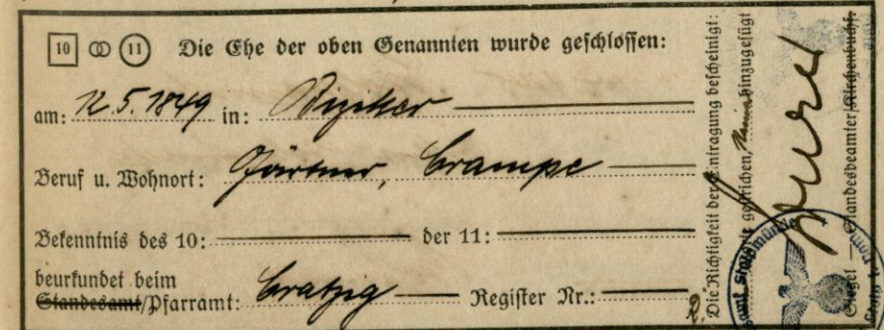 10 ⚭ 11 Die Ehe der oben Genannten wurde geschlossen:
am: 12.5.1849 in: Biziker
Beruf u. Wohnort: Gärtner, Crampe
Bekenntnis des 10: der 11:
beurkundet beim
Standesamt/Pfarramt: Cratzig Register Nr.:
Die Richtigkeit der Eintragung bescheinigt:
gestrichen, hinzugefügt
Siegel – Standesbeamter/Kirchenbuchf.